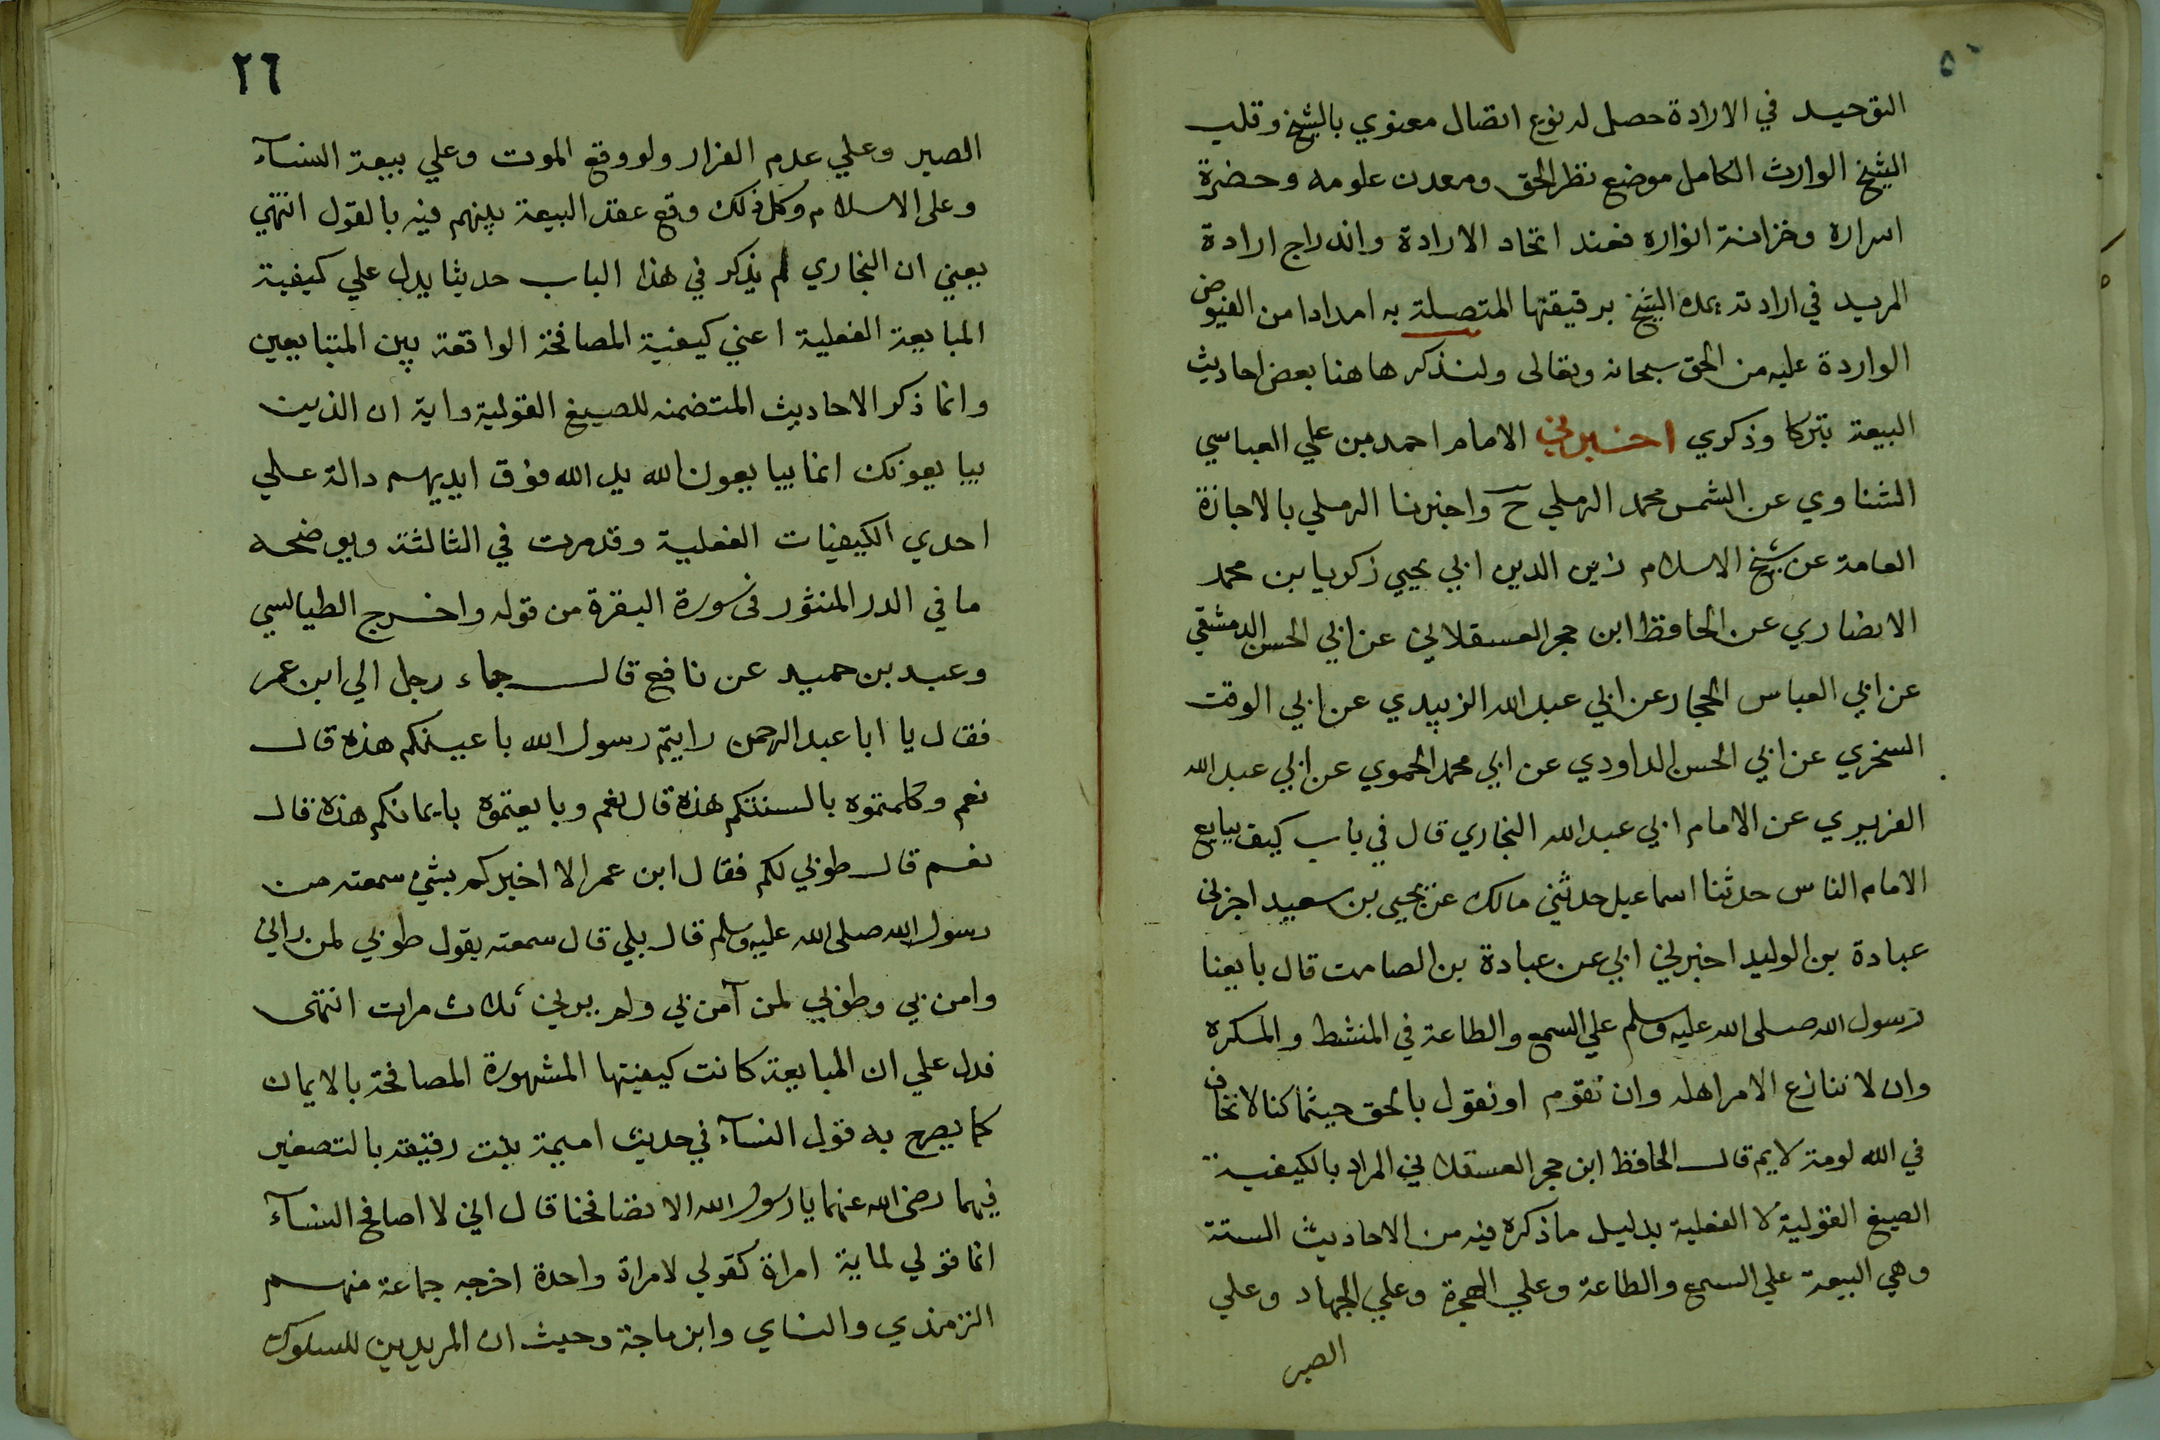 التوحيد في الارادة حصل له نوع اتصال معنوي بالشيخ وقلب
الشيخ الوارث الكامل موضع نظر الحق ومعدن علومه وحضرة
اسراره وخزانة انواره فعند اتحاد الارادة واندراج ارادة
المريد في ارادته يمده الشيخ برقيقتها المتصلة به امدادا من الفيوض
الواردة عليه من الحق سبحانه وتعالى ولنذكر هاهنا بعض احاديث
البيعة تبركا وذكري اخبرني الامام احمد بن علي العباسي
الشناوي عن الشمس محمد الرملي ح واخبرنا الرملي بالاجازة
العامة عن شيخ الاسلام زين الدين ابي يحيي زكريا بن محمد
الانصاري عن الحافظ ابن حجر العسقلاني عن ابي الحسن الدمشقي
عن ابي العباس الحجار عن ابي عبد الله الزبيدي عن ابي الوقت
السخري عن ابي الحسن الداودي عن ابي محمد الحموي عن ابي عبد الله
الفربري عن الامام ابي عبد الله البخاري قال في باب كيف يبايع
الامام الناس حدثنا اسماعيل حدثني مالك عن يحيي بن سعيد اخبرني
عبادة بن الوليد اخبرني ابي عن عبادة بن الصامت قال بايعنا
رسول الله صلى الله عليه وسلم علي السمع والطاعة في المنشط والمكره
وان لا ننازع الامر اهله وان نقوم او نقول بالحق حيثما كنا لا نخاف
في الله لومة لايم قال الحافظ ابن حجر العسقلاني المراد بالكيفية
الصيغ القولية لا الفعلية بدليل ما ذكره فيه من الاحاديث الستة
وهي البيعة علي السمع والطاعة وعلي الهجرة وعلي الجهاد وعلي
الصبر
٢٦
الصبر وعلي عدم الفرار ولو وقع الموت وعلي بيعة النسآء
وعلى الاسلام وكل ذلك وقع عقد البيعة بينهم فيه بالقول انتهي
يعني ان البخاري لم يذكر في هذا الباب حديثا يدل علي كيفية
المبايعة الفعلية اعني كيفية المصافحة الواقعة بين المتبايعين
وانما ذكر الاحاديث المتضمنه للصيغ القولية واية ان الذين
يبايعونك انما يبايعون الله يد الله فوق ايديهم دالة علي
احدي الكيفيات الفعلية وقد مرت في الثالثة ويوضحه
ما في الدر المنثور في سورة البقرة من قوله واخرج الطيالسي
وعبد بن حميد عن نافع قال جاء رجل الي ابن عمر
فقال يا ابا عبد الرحمن رايتم رسول الله باعينكم هذه قال
نعم وكلمتموه بالسنتكم هذه قال نعم وبايعتموه بايمانكم هذه قال
نعم قال طوبي لكم فقال ابن عمر الا اخبركم بشئ سمعته من
رسول الله صلى الله عليه وسلم قال بلي قال سمعته يقول طوبي لمن راني
وامن بي وطوبي لمن آمن بي ولم يرني ثلاث مرات انتهى
فدل علي ان المبايعة كانت كيفيتها المشهورة المصافحة بالايمان
كما يصرح به قول النسآء في حديث اميمة بنت رقيقه بالتصغير
فيهما رضي الله عنهما يا رسول الله الا تصافحنا قال اني لا اصافح النسآء
انما قولي لماية امراة كقولي لامراة واحدة اخرجه جماعة منهم
الترمذي والنساي وابن ماجة وحيث ان المريدين للسلوك